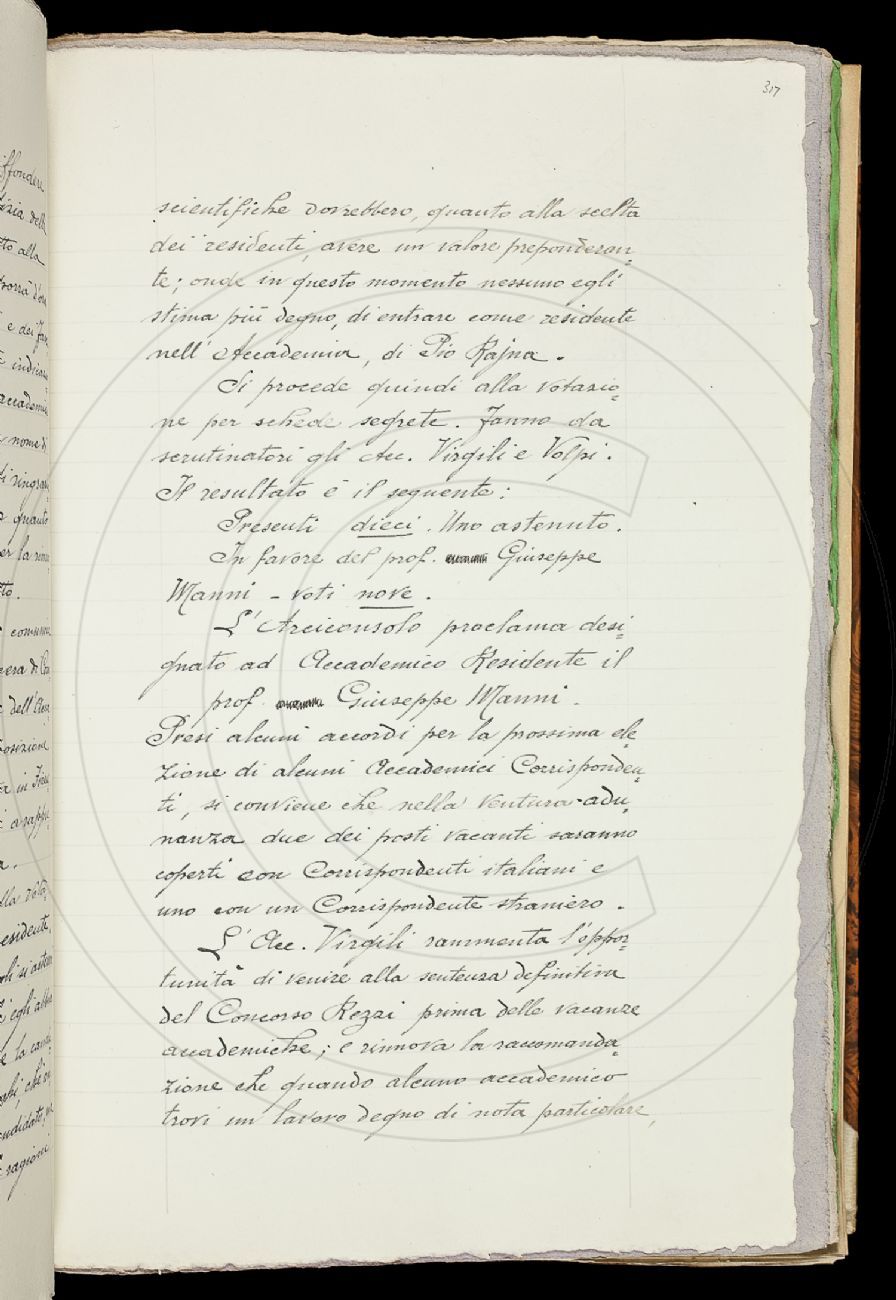 317
scientifiche dovrebbero, quanto alla scelta
dei residenti, avere un valore preponderan=
te; onde in questo momento nessuno egli
stima più degno, di entrare come residente
nell'Accademia, di Pio Rajna.
Si procede quindi alla votazio=
ne per schede segrete. Fanno da
scrutinatori gli Acc. Virgili e Volpi.
Il resultato è il seguente:
Presenti dieci. Uno astenuto.
In favore del prof. Giuseppe
Manni - voti nove.
L'Arciconsolo proclama desi=
gnato ad Accademico Residente il
prof. Giuseppe Manni.
Presi alcuni accordi per la prossima ele=
zione di alcuni Accademici Corrisponden=
ti, si conviene che nella ventura adu=
nanza due dei posti vacanti saranno
coperti con Corrispondenti italiani e
uno con un Corrispondente straniero.
L'Acc. Virgili rammenta l'oppor=
tunità di venire alla sentenza definitiva
del Concorso Rezzi prima delle vacanze
accademiche; e rinnova la raccomanda=
zione che quando alcuno accademico
trovi un lavoro degno di nota particolare,